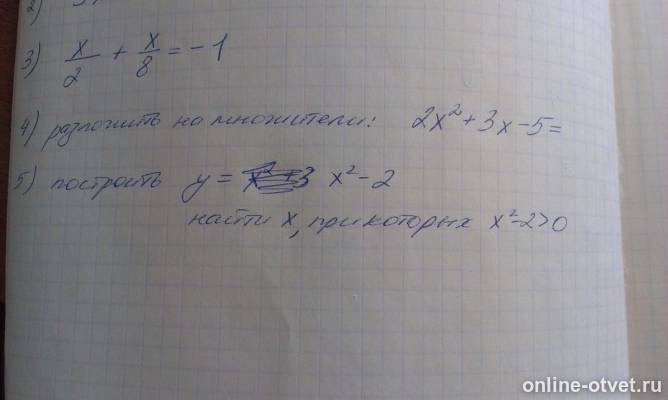 3) x/2 + x/8 = -1
4) разложить на множители: 2x²+3x-5=
5) построить y = x²-2
найти x, при которых x²-2>0
online-otvet.ru